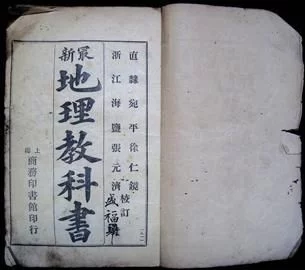 直隸宛平徐仁鏡
浙江海鹽張元濟
校訂
盛福
最新
地理教科書
上海
商務印書館印行